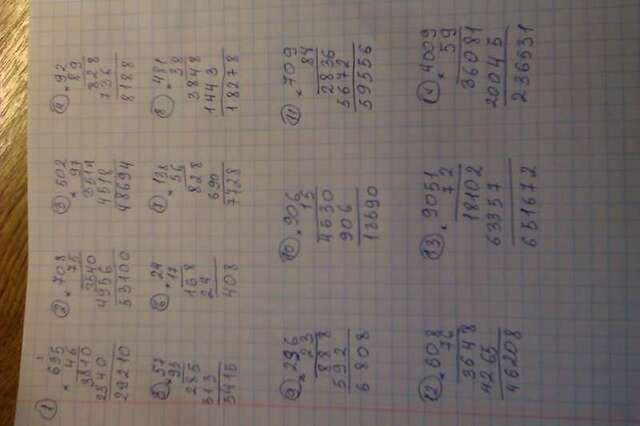 1
× 635
46
3810
2540
29210
2
× 708
75
3540
4956
53100
3
× 502
97
3514
4518
48694
4
× 92
89
828
736
8188
5
× 57
95
285
513
5415
6
× 24
17
168
24
408
7
× 138
56
828
690
7728
8
× 481
38
3848
1443
18278
9
× 296
23
888
592
6808
10
× 906
15
4530
906
13590
11
× 709
84
2836
5672
59556
12
× 608
76
3648
4256
46208
13
× 9051
72
18102
63357
651672
14
× 4009
59
36081
20045
236531